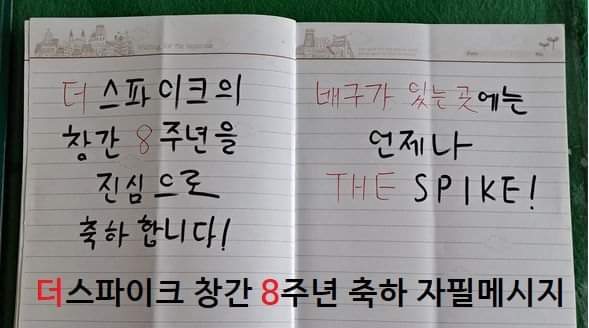 더 스파이크의
창간 8주년을
진심으로
축하합니다!
배구가 있는곳에는
언제나
THE SPIKE!
더스파이크 창간 8주년 축하 자필메시지